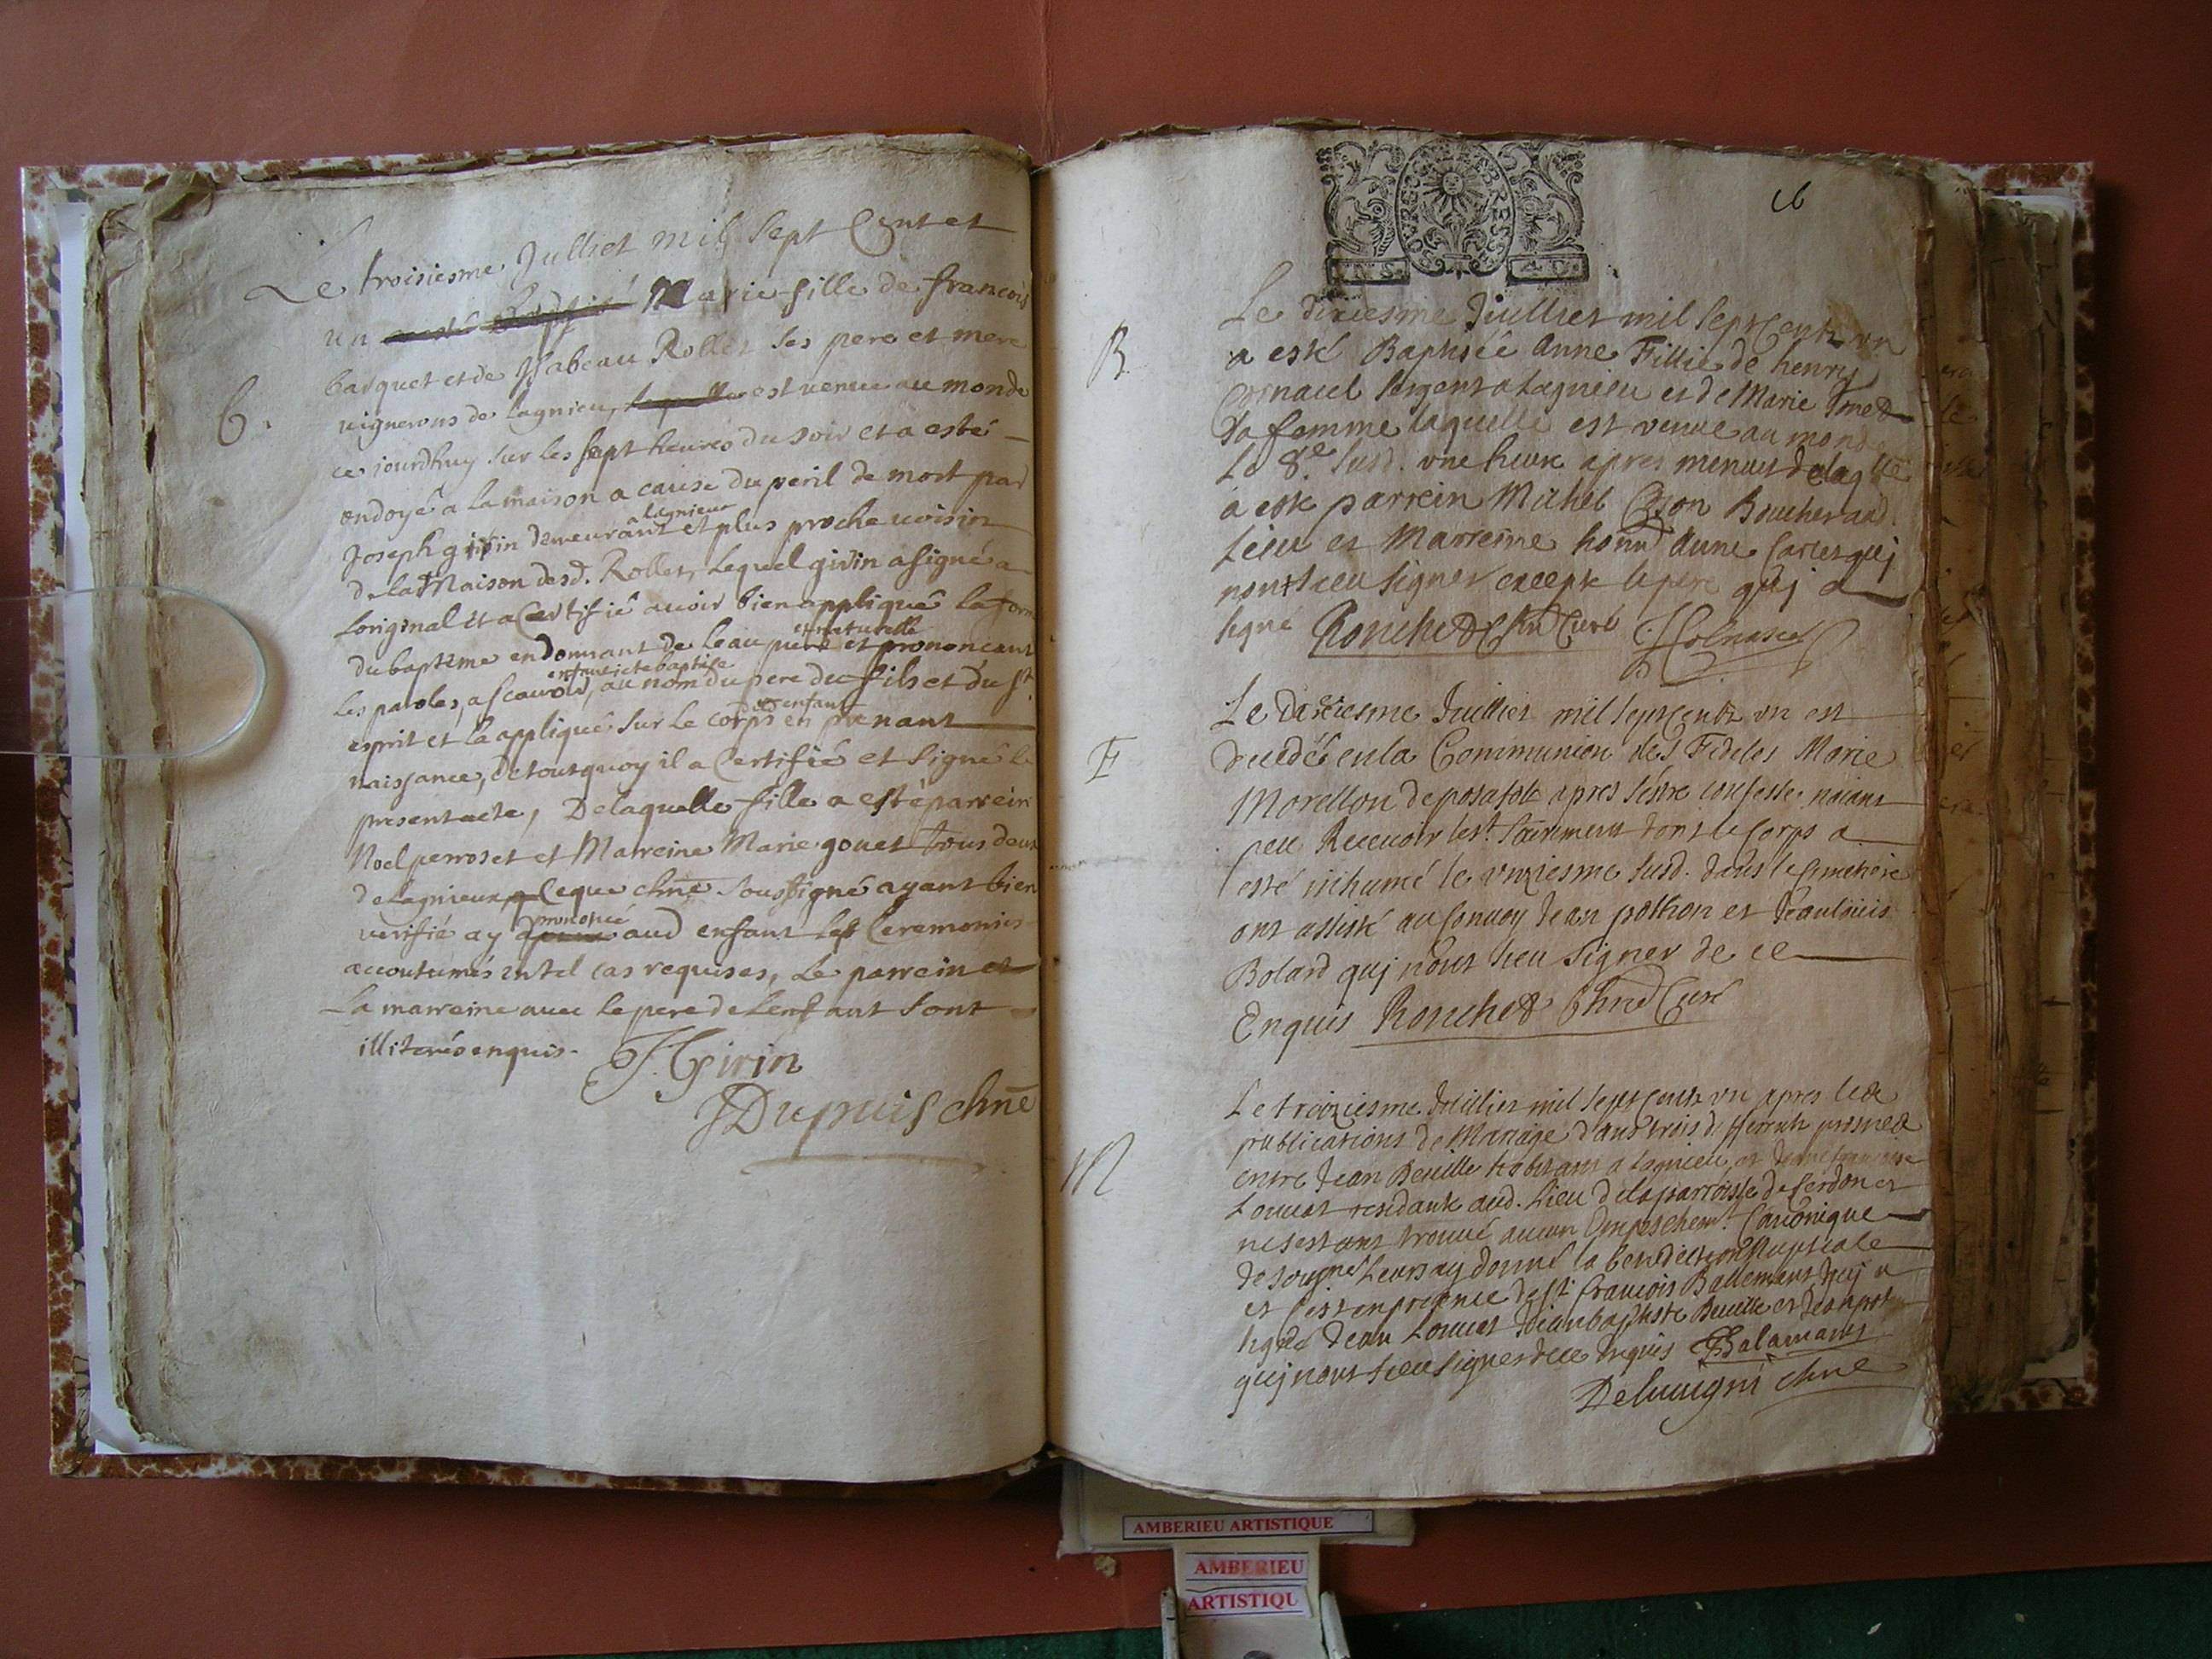 Le troisiesme Julliet mil Sept Cent et
un Marie fille de francois
barquet et de Ysabeau Rollet ses pere et mere
vignerons de lagnieu, est venue au monde
B.
ce jourdhuy sur les sept heures du soir et a esté
ondoyé a la maison a cause du peril de mort par
a lagnieux
Joseph girin demeurant et plus proche voisin
de la Maison desd. Rollet, Lequel girin a signé a
Loriginal et a Certifié avoir bien appliqué la forme
et naturelle
du baptesme en donnant de leau et prononceant
enfant je te baptise
Les paroles, a scavoir, au nom du pere du fils et du st
enfant
esprit et la appliqué sur le corps en
naissance, de tout quoy il a Certifié et signé le
present acte, De laquelle fille a esté parrein
Noel perroset et Marreine Marie gouet tous deux
de Lagnieux, Ceque chne soussigné ayant bien
prononcé
verifié ay aud enfant les Ceremonies
accoutumés en tel cas requises, Le parrein et
La marreine avec le pere de Lenfant sont
illiterés enquis.
J. Girin
JDupuis chne
GEN S
16
BOVRGO BRESSE
Le dixiesme Juillier mil sept Cents un
B
a esté Baptisée Anne Fillie de henry
Cornacel sergent a Lagnieu et de Marie
Sa femme laquelle est venue au monde
Le 8.e susd. une heure apres menuit de laqlle
a esté parrein Michel Boucher aud.
Lieu et Marreine honn Anne Carlet quj
nont sceu signer excepte le pere quj a
signé Ronchet chne Curé
Le dixiesme Juillier mil sept Cents un est
F
decedée en la Communion des Fideles Marie
Morellon apres sestre confessée naiant
peu Recevoir les st. Sacrement dont le Corps a
esté inhumé le unziesme susd. dans le Cimetiere
ont assisté au Convoy Jean pothon et Jean louis
Bolard quj nont sceu signer de ce
Enquis Ronchet Chne Curé
Le treiziesme Juillier mil sept Cents un apres les
publications de Mariage dans trois prosnes
M
entre Jean Beuille habitant a lagnieu et
Louuat residante aud. Lieu de la parroisse de Cerdon et
ne sestant trouvé aucun Empeschemt. Canonique
Je sougné Leurs ay donné la benediction Nuptiale
et sest en presence de st. francois Ballemant quj a
signé Jean Louuat Jean baptiste Beuille et Jean
quj nont sceu signer de ce enquis Balamant
chne
AMBERIEU ARTISTIQUE
AMBERIEU
ARTISTIQU